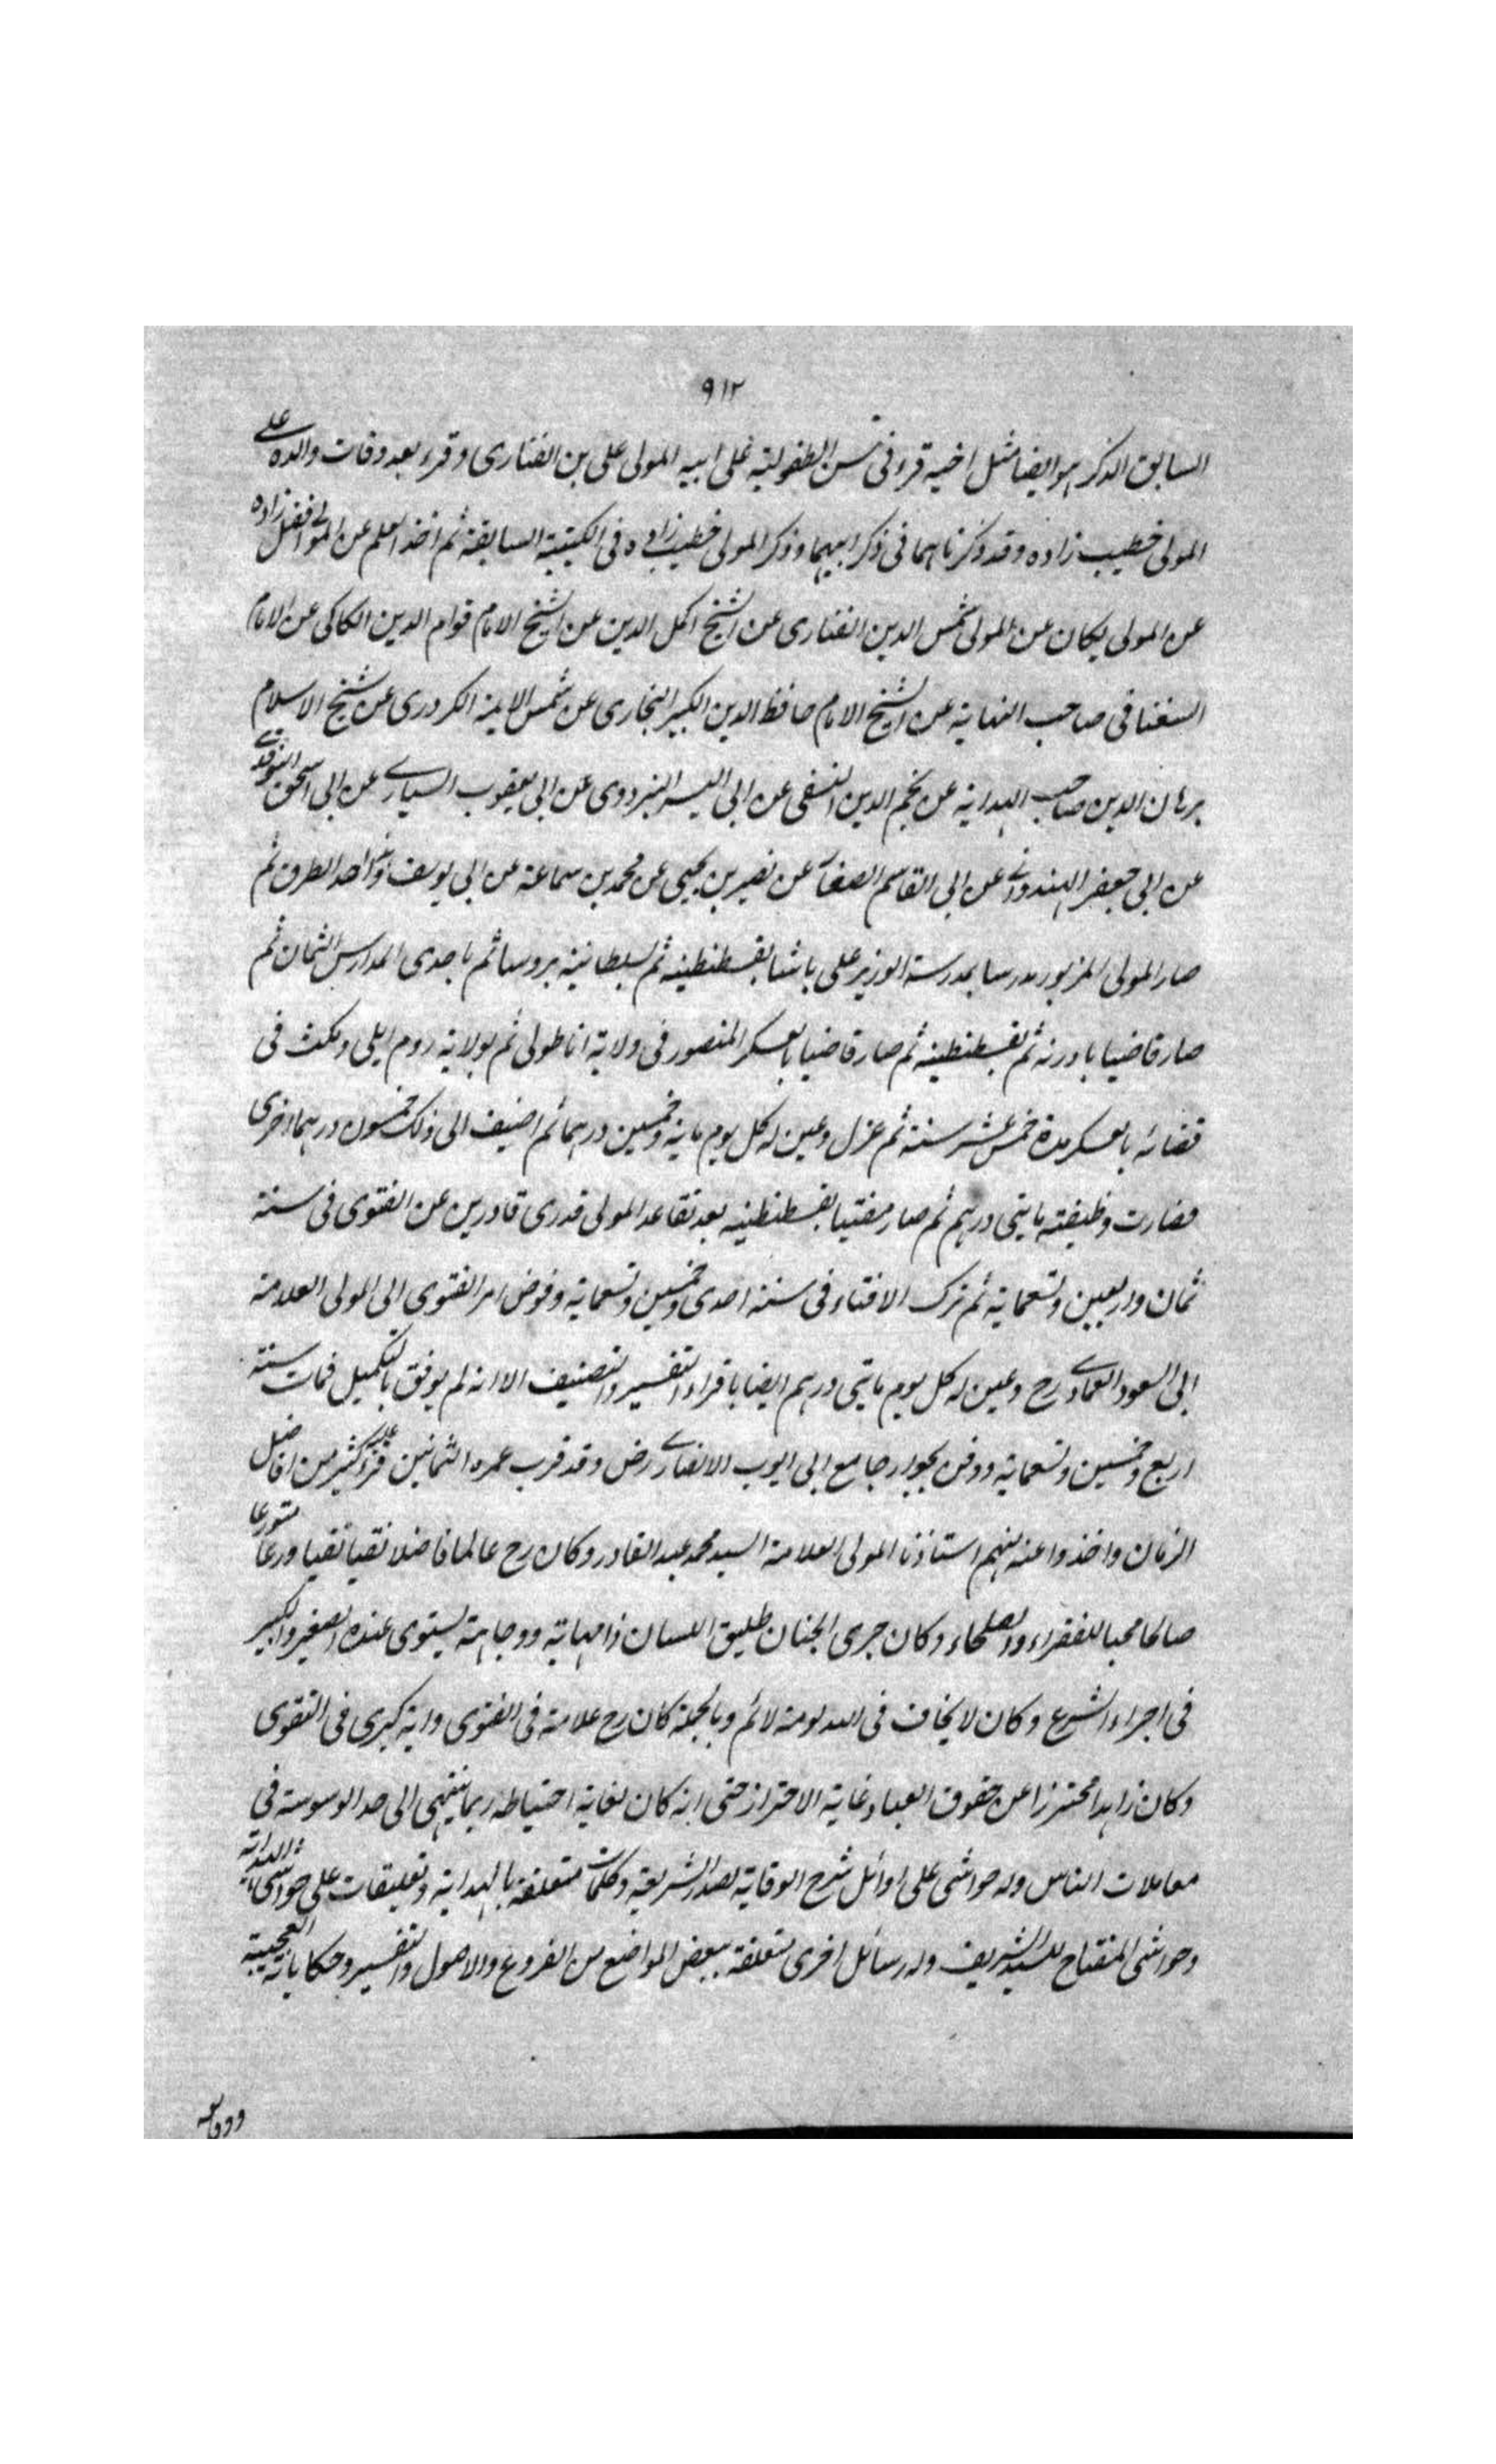 ٩١٢
السابق الذكر هو ايضا مثل اخيه قرء فى سن الطفولية على ابيه المولى على بن الفنارى وقرء بعد وفات والده على
المولى خطيب زاده وقد ذكرناهما فى ذكر ابيهما وذكر المولى خطيب زاده فى الكتيبة السابقة ثم اخذ العلم عن المولى افضل زاده
عن المولى يكان عن المولى شمس الدين الفنارى عن الشيخ اكمل الدين عن الشيخ الامام قوام الدين الكاكى عن الامام
السغناقى صاحب النهاية عن الشيخ الامام حافظ الدين الكبير البخارى عن شمس الايمة الكردرى عن شيخ الاسلام
برهان الدين صاحب الهداية عن نجم الدين النسفى عن ابى اليسر البزدوى عن ابى يعقوب السيارى عن ابى اسحق النوقدى
عن ابى جعفر الهندوانى عن ابى القاسم الصفار عن نصير بن يحيى عن محمد بن سماعة عن ابى يوسف واحد الطرق ثم
صار المولى المزبور مدرسا بمدرسة الوزير على باشا بقسطنطينه ثم بسلطانية بروسا ثم باحدى المدارس الثمان ثم
صار قاضيا بادرنه ثم بقسطنطينه ثم صار قاضيا بالعسكر المنصور فى ولاية اناطولى ثم بولاية روم ايلى ومكث فى
قضائه بالعسكر مدة خمس عشر سنة ثم عزل وعين له كل يوم ماية وخمسين درهما ثم اضيف الى ذلك خمسون درهما اخرى
فصارت وظيفته مايتى درهم ثم صار مفتيا بقسطنطينه بعد تقاعد المولى قدرى قادرين عن الفتوى فى سنة
ثمان واربعين وتسعماية ثم ترك الافتاء فى سنة احدى وخمسين وتسعماية وفوض امر الفتوى الى المولى العلامة
ابى السعود العمادى رح وعين له كل يوم مايتى درهم ايضا باقراء التفسير والتصنيف الا انه لم يوفق بالتكميل فمات سنة
اربع وخمسين وتسعماية ودفن بجوار جامع ابى ايوب الانصارى رض وقد قرب عمره الثمانين قرء عليه كثير من افاضل
الزمان واخذوا عنه منهم استاذنا المولى العلامة السيد محمد عبد القادر وكان رح عالما فاضلا تقيا نقيا ورعا متورعا
صالحا محبا للفقراء والصلحاء وكان جرى الجنان طليق اللسان ذا مهابة ووجاهة يستوى عنده الصغير والكبير
فى اجراء الشرع وكان لا يخاف فى الله لومة لائم وبالجملة كان رح علامة فى الفتوى واية كبرى فى التقوى
وكان زاهدا محترزا عن حقوق العباد غاية الاحتراز حتى انه كان لغاية احتياطه ربما ينتهى الى حد الوسوسة فى
معاملات الناس وله حواشى على اوائل شرح الوقاية لصدر الشريعة وكلمات متعلقة بالهداية وتعليقات على حواشى
وحواشى المفتاح للسيد الشريف وله رسائل اخرى متعلقة ببعض المواضع من الفروع والاصول والتفسير وحكاياته العجيبة